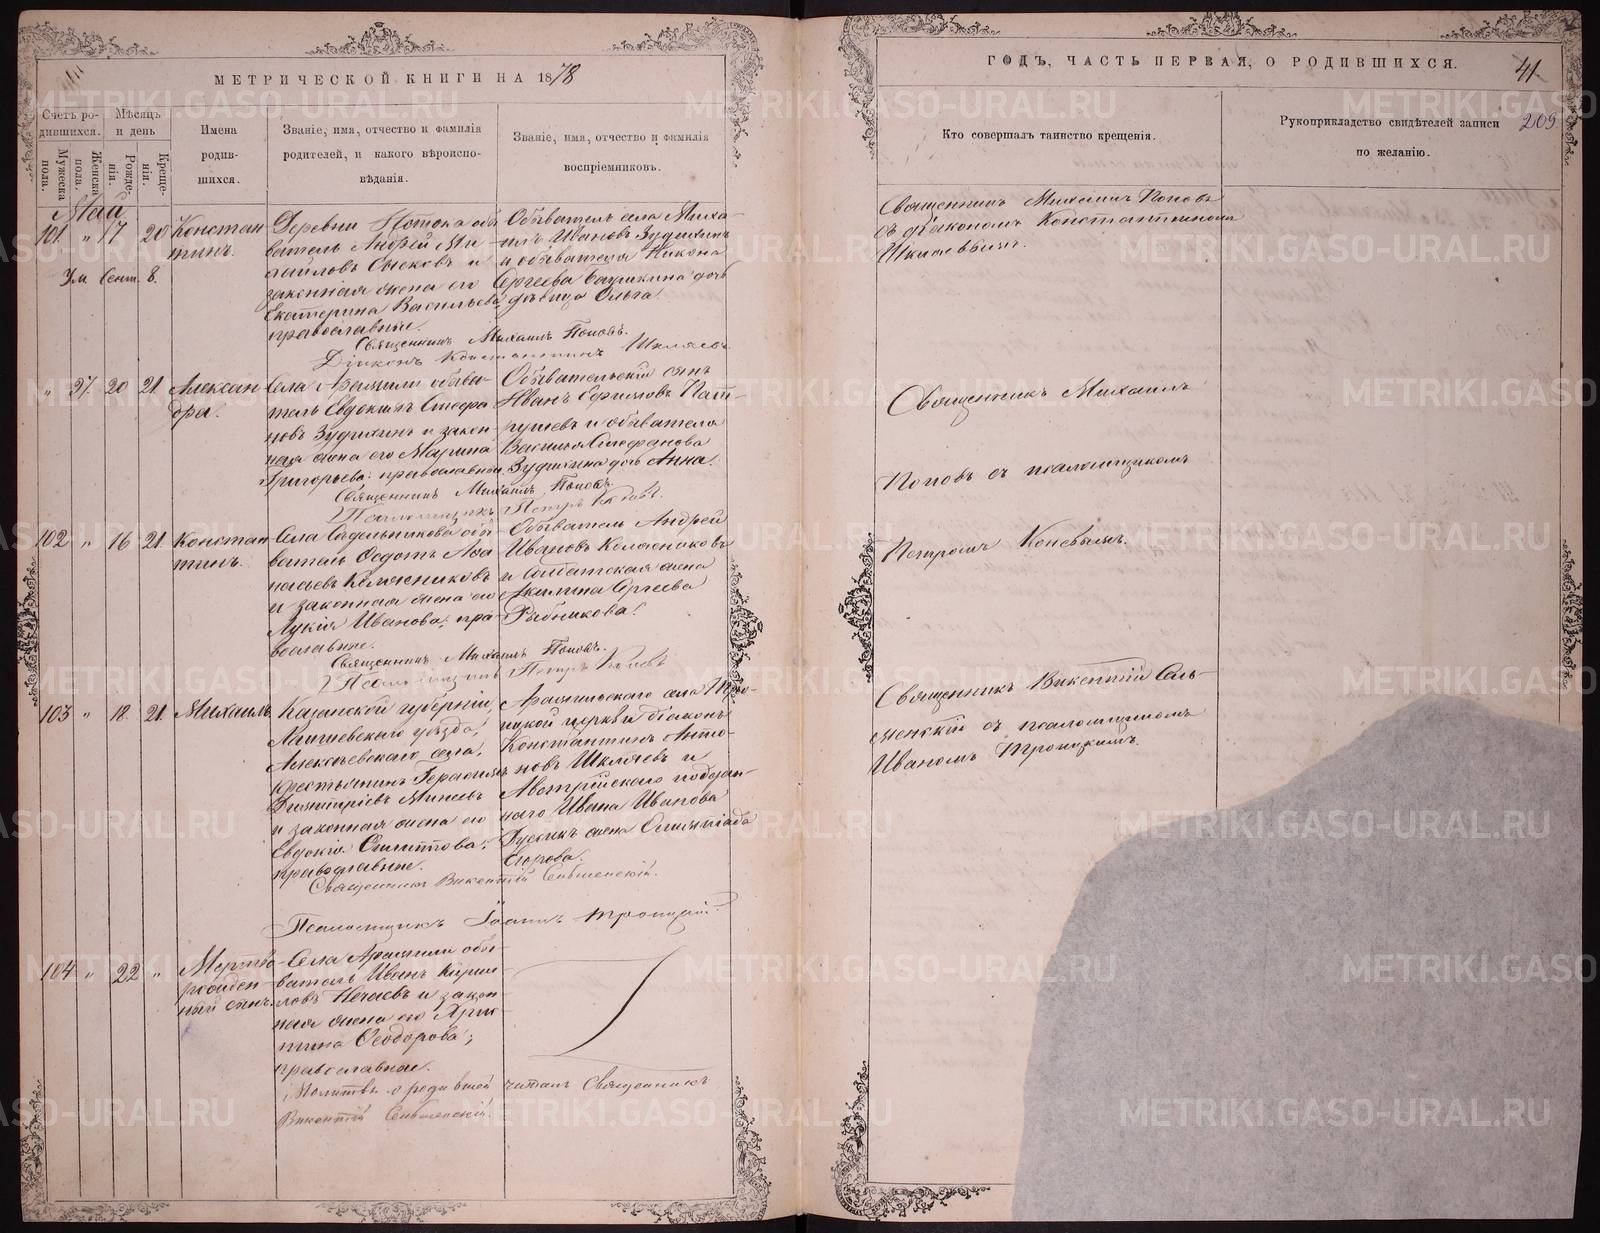 МЕТРИЧЕСКОЙ КНИГИ НА 1878
Счетъ ро-
дившихся.
Мужеска
пола.
Женска
пола.
Мѣсяцъ
и день
Рожде-
нія.
Креще-
нія.
Имена
родив-
шихся.
Званіе, имя, отчество и фамилія
родителей, и какого вѣроиспо-
вѣданія.
Званіе, имя, отчество и фамилія
воспріемниковъ.
Май
101 " 17 20 Констан
тинъ.
Ум. Сент. 8.
Деревни Истока обы
ватель Андрей Ми
хайловъ Сысковъ и
законная жена его
Екатерина Васильева
православные.
Обыватель села Миха-
илъ Ивановъ Зудихинъ
и обывателя Никона
Сергеева дочь
дѣвица Ольга.
Священникъ Михаилъ Поповъ.
Діаконъ Константинъ Шкляевъ
" 27. 20 21. Алексан-
дра.
Села Арамили обыва-
тель Евдокимъ Стефа
новъ Зудихинъ и закон-
ная жена его Марина
Григорьева: православные
Обывательскій сынъ
Иванъ Ефимовъ Пат-
рушевъ и обывателя
Василья Стефанова
Зудихина дочь Анна.
Священникъ Михаилъ Поповъ
Псаломщикъ Петръ
102 " 16 21. Констан
тинъ.
Села обы
ватель Федотъ Афа
насьевъ
и законная жена его
Лукія Иванова: пра-
вославные.
Обыватель Андрей
Ивановъ
и Солдатская жена
Акилина Сергеева
Рыбникова.
Священникъ Михаилъ Поповъ.
Псаломщикъ Петръ
103 " 18. 21. Михаилъ
Казанской губерніи,
Лаишевскаго уѣзда,
Алексѣевскаго села,
крестьянинъ Герасимъ
Димитріевъ Минеевъ
и законная жена его
Евдокія Филиппова;
православные.
Арамильскаго села Тро-
ицкой церкви діаконъ
Константинъ Анто-
новъ Шкляевъ и
Австрійскаго поддан-
наго Ивана Иванова
жена Олимпіада
Священникъ Викентій
Псаломщикъ Іоаннъ Троицкій.
104 " 22 " Мертво
рожден-
ный сынъ.
Села Арамили обы-
ватель Иванъ Кирил
ловъ Нечаевъ и закон-
ная жена его Хрис
тина Ѳеодорова;
православные.
Молитвы о родившей читалъ Священникъ
Викентій
ГОДЪ, ЧАСТЬ ПЕРВАЯ, О РОДИВШИХСЯ.
41
209
Кто совершалъ таинство крещенія.
Рукоприкладство свидѣтелей записи
по желанію.
Священникъ Михаилъ Поповъ
съ діакономъ Константиномъ
Шкляевымъ.
Священникъ Михаилъ
Поповъ съ псаломщикомъ
Петромъ Коневымъ.
Священникъ Викентій
съ псаломщикомъ
Иваномъ Троицкимъ.
METRIKI.GASO-URAL.RU